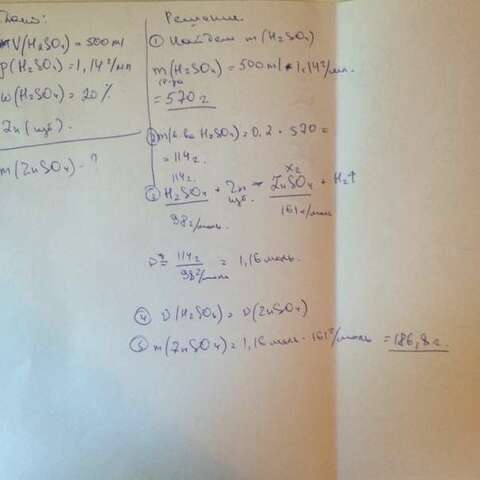 Дано:
V(H₂SO₄) = 500 ml
ρ(H₂SO₄) = 1,14 г/мл
ω(H₂SO₄) = 20 %
Zn (изб).
m(ZnSO₄) - ?
Решение
① Найдем m(H₂SO₄)
m(H₂SO₄) = 500 ml · 1,14 г/мл.
р-ра
= 570 г
② m(в-ва H₂SO₄) = 0,2 · 570 =
= 114 г.
114 г. x г
③ H₂SO₄ + Zn = ZnSO₄ + H₂↑
изб.
98 г/моль 161 г/моль
ν = 114 г / 98 г/моль = 1,16 моль.
④ ν(H₂SO₄) = ν(ZnSO₄)
⑤ m(ZnSO₄) = 1,16 моль · 161 г/моль = 186,8 г.